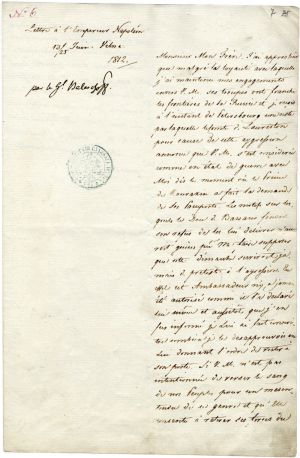 No 6.
7
Lettre à l'Empereur Napoléon
13/25 Juin. Vilna
1812.
par le Gl Balachoff.
Monsieur Mon Frère. J'ai appris hier
que malgré la loyauté avec laquelle
j'ai maintenu mes engagements
envers V. M. ses troupes ont franchi
les frontières de la Russie et je reçois
à l'instant de Petersbourg une note
par laquelle le Comte de Lauriston
pour cause de cette agression
annonce que V. M. s'est considérée
comme en état de guerre avec
Moi dès le moment où le Prince
de Kourakin a fait la demande
de ses passeports. Les motifs sur les
quels le Duc de Bassano fondait
son refus de les lui délivrer n'au
roient jamais pu Me faire supposer
que cette démarche servirait ja
mais de prétexte à l'agression. En
effet cet Ambassadeur n'y a jamais
été autorisé comme il l'a déclaré
lui même et aussitôt que j'en
fus informé je lui ai fait connoî
tre combien je le désapprouvois en
lui donnant l'ordre de rester à
son poste. Si V. M. n'est pas
intentionnée de verser le sang
de nos peuples pour un mésen
tendu de ce genre et qu'Elle
consente à retirer ses troupes du